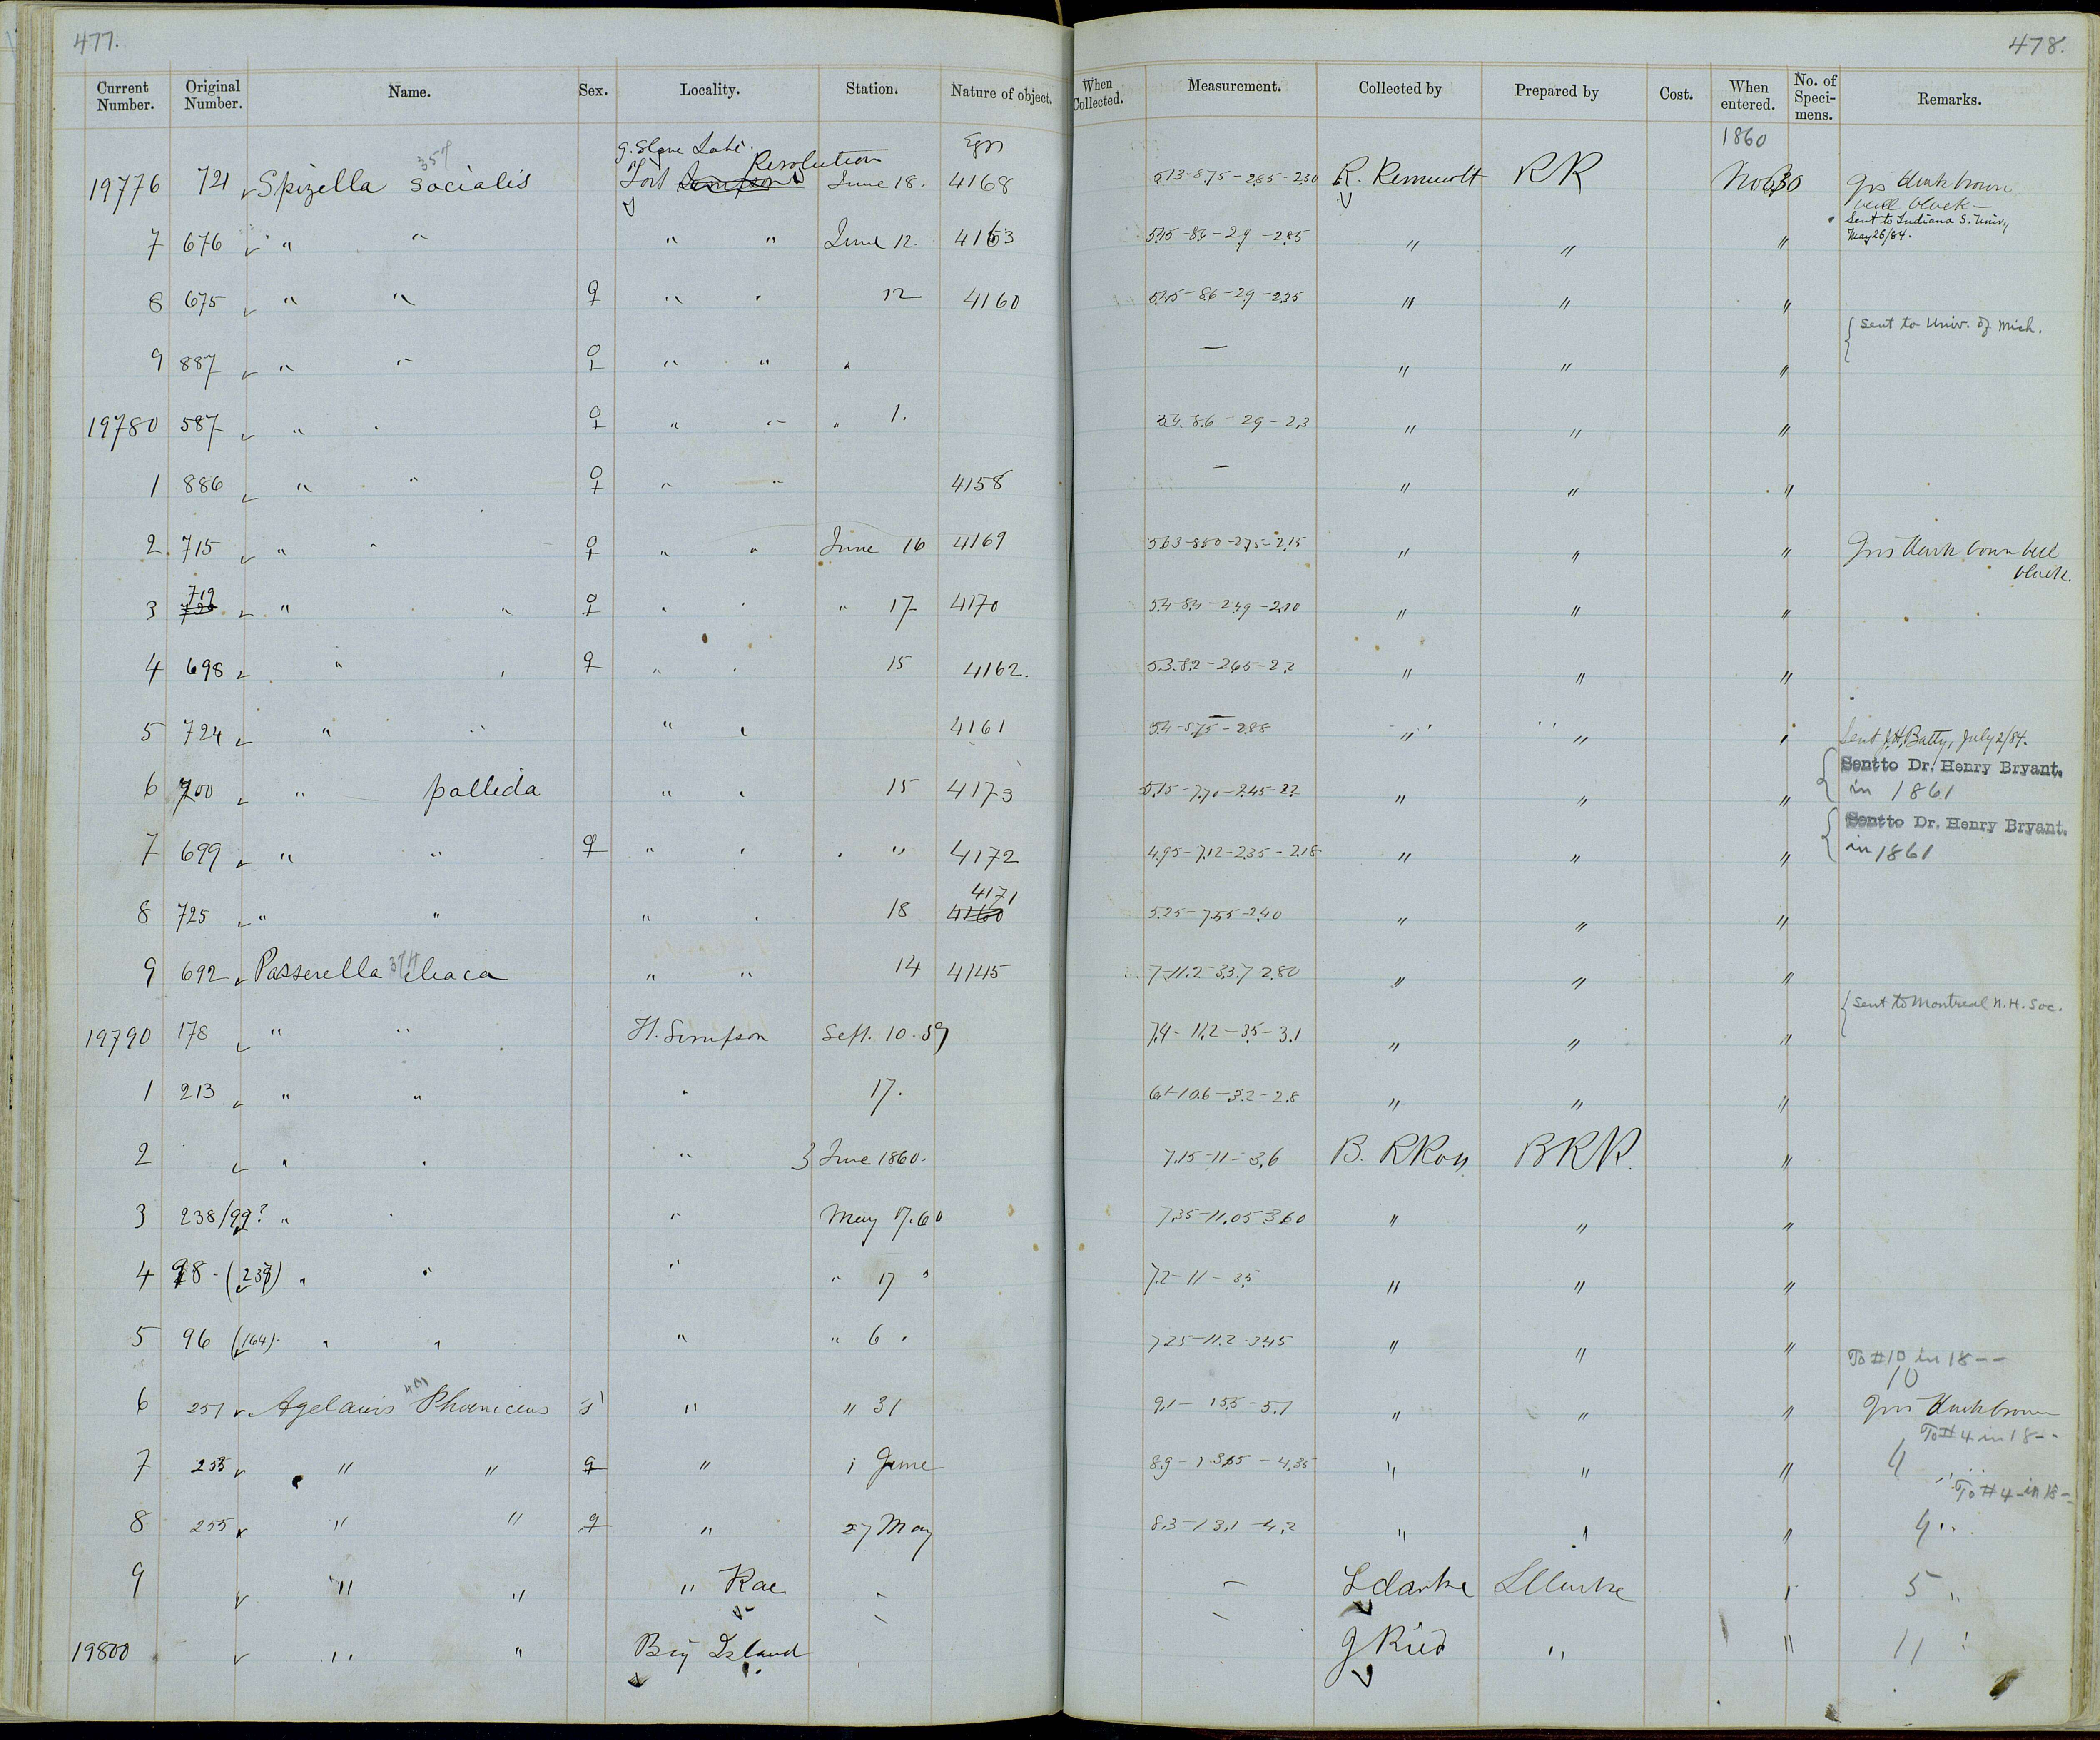 477.
478.
Current Number. Original Number. Name. Sex. Locality. Station. Nature of object. When Collected. Measurement. Collected by Prepared by Cost. When entered. No. of Speci-mens. Remarks.
G. Slave Lake. Egg 1860
19776 721 Spizella socialis Fort Simpson Resolution June 18. 4168 R. Kennicott RK Nov 30 Iris dark brown
bill black
7 676 " " " " June 12. 4163 " " " Sent to Indiana S. Univ.,
May 26/84.
8 675 " " ♀ " " 12 4160 5.45-8.6-2.9-2.35 " " "
Sent to Univ. of Mich.
9 887 " " ♀ " " " — " " "
19780 587 " " ♀ " " " 1. 5.4. 8.6-2.9-2.3 " " "
1 886 " " ♀ " " 4158 — " " "
2 715 " " ♀ " " June 16 4169 5.63-8.50-2.75-2.15 " " " Iris dark brown bill
black.
3 719 " " ♀ " " " 17 4170 5.4-8.4-2.49-2.10 " " "
4 698 " " ♀ " " 15 4162. 5.3.8.2-2.65-2.2 " " "
5 724 " " " " 4161 5.4-8.75-2.88 " " " Sent J.H. Batty, July 2/84.
6 700 " pallida " " 15 4173 5.15-7.70-2.45-2.2 " " " Sent to Dr. Henry Bryant.
in 1861
7 699 " " ♀ " " " " 4172 4.95-7.12-2.35-2.18 " " " Sent to Dr. Henry Bryant.
in 1861
4171
8 725 " " " " 18 4160 5.25-7.55-2.40 " " "
9 692 Passerella iliaca " " 14 4145 7-11.2-3.3.7 2.80 " " "
Sent to Montreal N.H. Soc.
19790 178 " " Ft. Simpson Sept. 10. 59 7.4-11.2-3.5-3.1 " " "
1 213 " " " 17. 6.1-10.6-3.2-2.8 " " "
2 " " " 3 June 1860. 7.15-11-3.6 B. R Ross BRR. "
3 238/99? " " " May 17. 60 7.35-11.05 3.60 " " "
4 98-(237) " " " " 17 " 7.2-11-3.5 " " "
5 96 (164) " " " " 6 " 7.25-11.2-3.45 " " "
To #10 in 18--
10
6 251 Agelaius Phoeniceus ♂ " " 31 9.1-15.5-5.1 " " " Iris dark brown
To #4 in 18--
7 253 " " ♀ " 1 June 8.9-13.65-4.35 " " " 4 "
To #4 in 18--
8 255 " " ♀ " 27 May 8.3-13.1-4.2 " " " 4 "
9 " " " Rae — — L Clarke L Clarke " 5 "
19800 " " Big Island — — J Reid " " 11 "